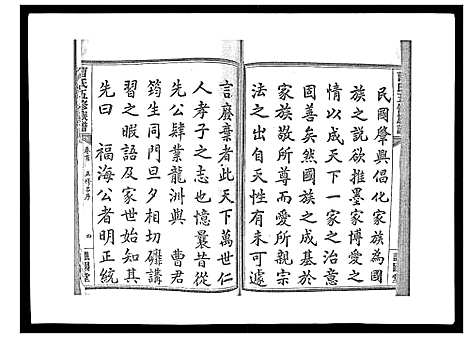 民國肇興倡化家族為國
族之說欲推墨家博愛之
情以成天下一家之治意
固善矣然國族之成基於
家族敬所尊而愛所親宗
法之出自天性有未可遽
言廢棄者此天下萬世仁
人孝子之志也憶曩昔從
先公肄業龍洲與 曹君
筠生同門旦夕相切礲講
習之暇語及家世始知其
先曰 福海公者明正統
曹氏五修族譜
卷首 五修名序 四